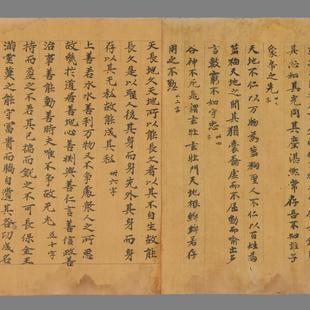 其忿和其光同其塵湛然常存吾不知誰子
象帝之先
天地不仁以万物為蒭狗聖人不仁以百姓為
蒭狗天地之間其猶橐籥虛而不屈動而喻出多
言數窮不如守忠
谷神不死是謂玄牝玄牝門天地根綿綿若存
用之不懃
天長地久天地所以能長久者以其不自生故能
長久是以聖人後其身而身先外其身而身
存以其无私故能成其私 卌六字
上善若水水善利万物又不爭處衆人之所惡
故幾於道居善地心善淵與善仁言善信政善
治事善能動善時夫唯不爭故无尤 五十字
持而盈之不若其已揣而銳之不可長保金玉
滿堂莫之能守富貴而驕自遺其咎功成名